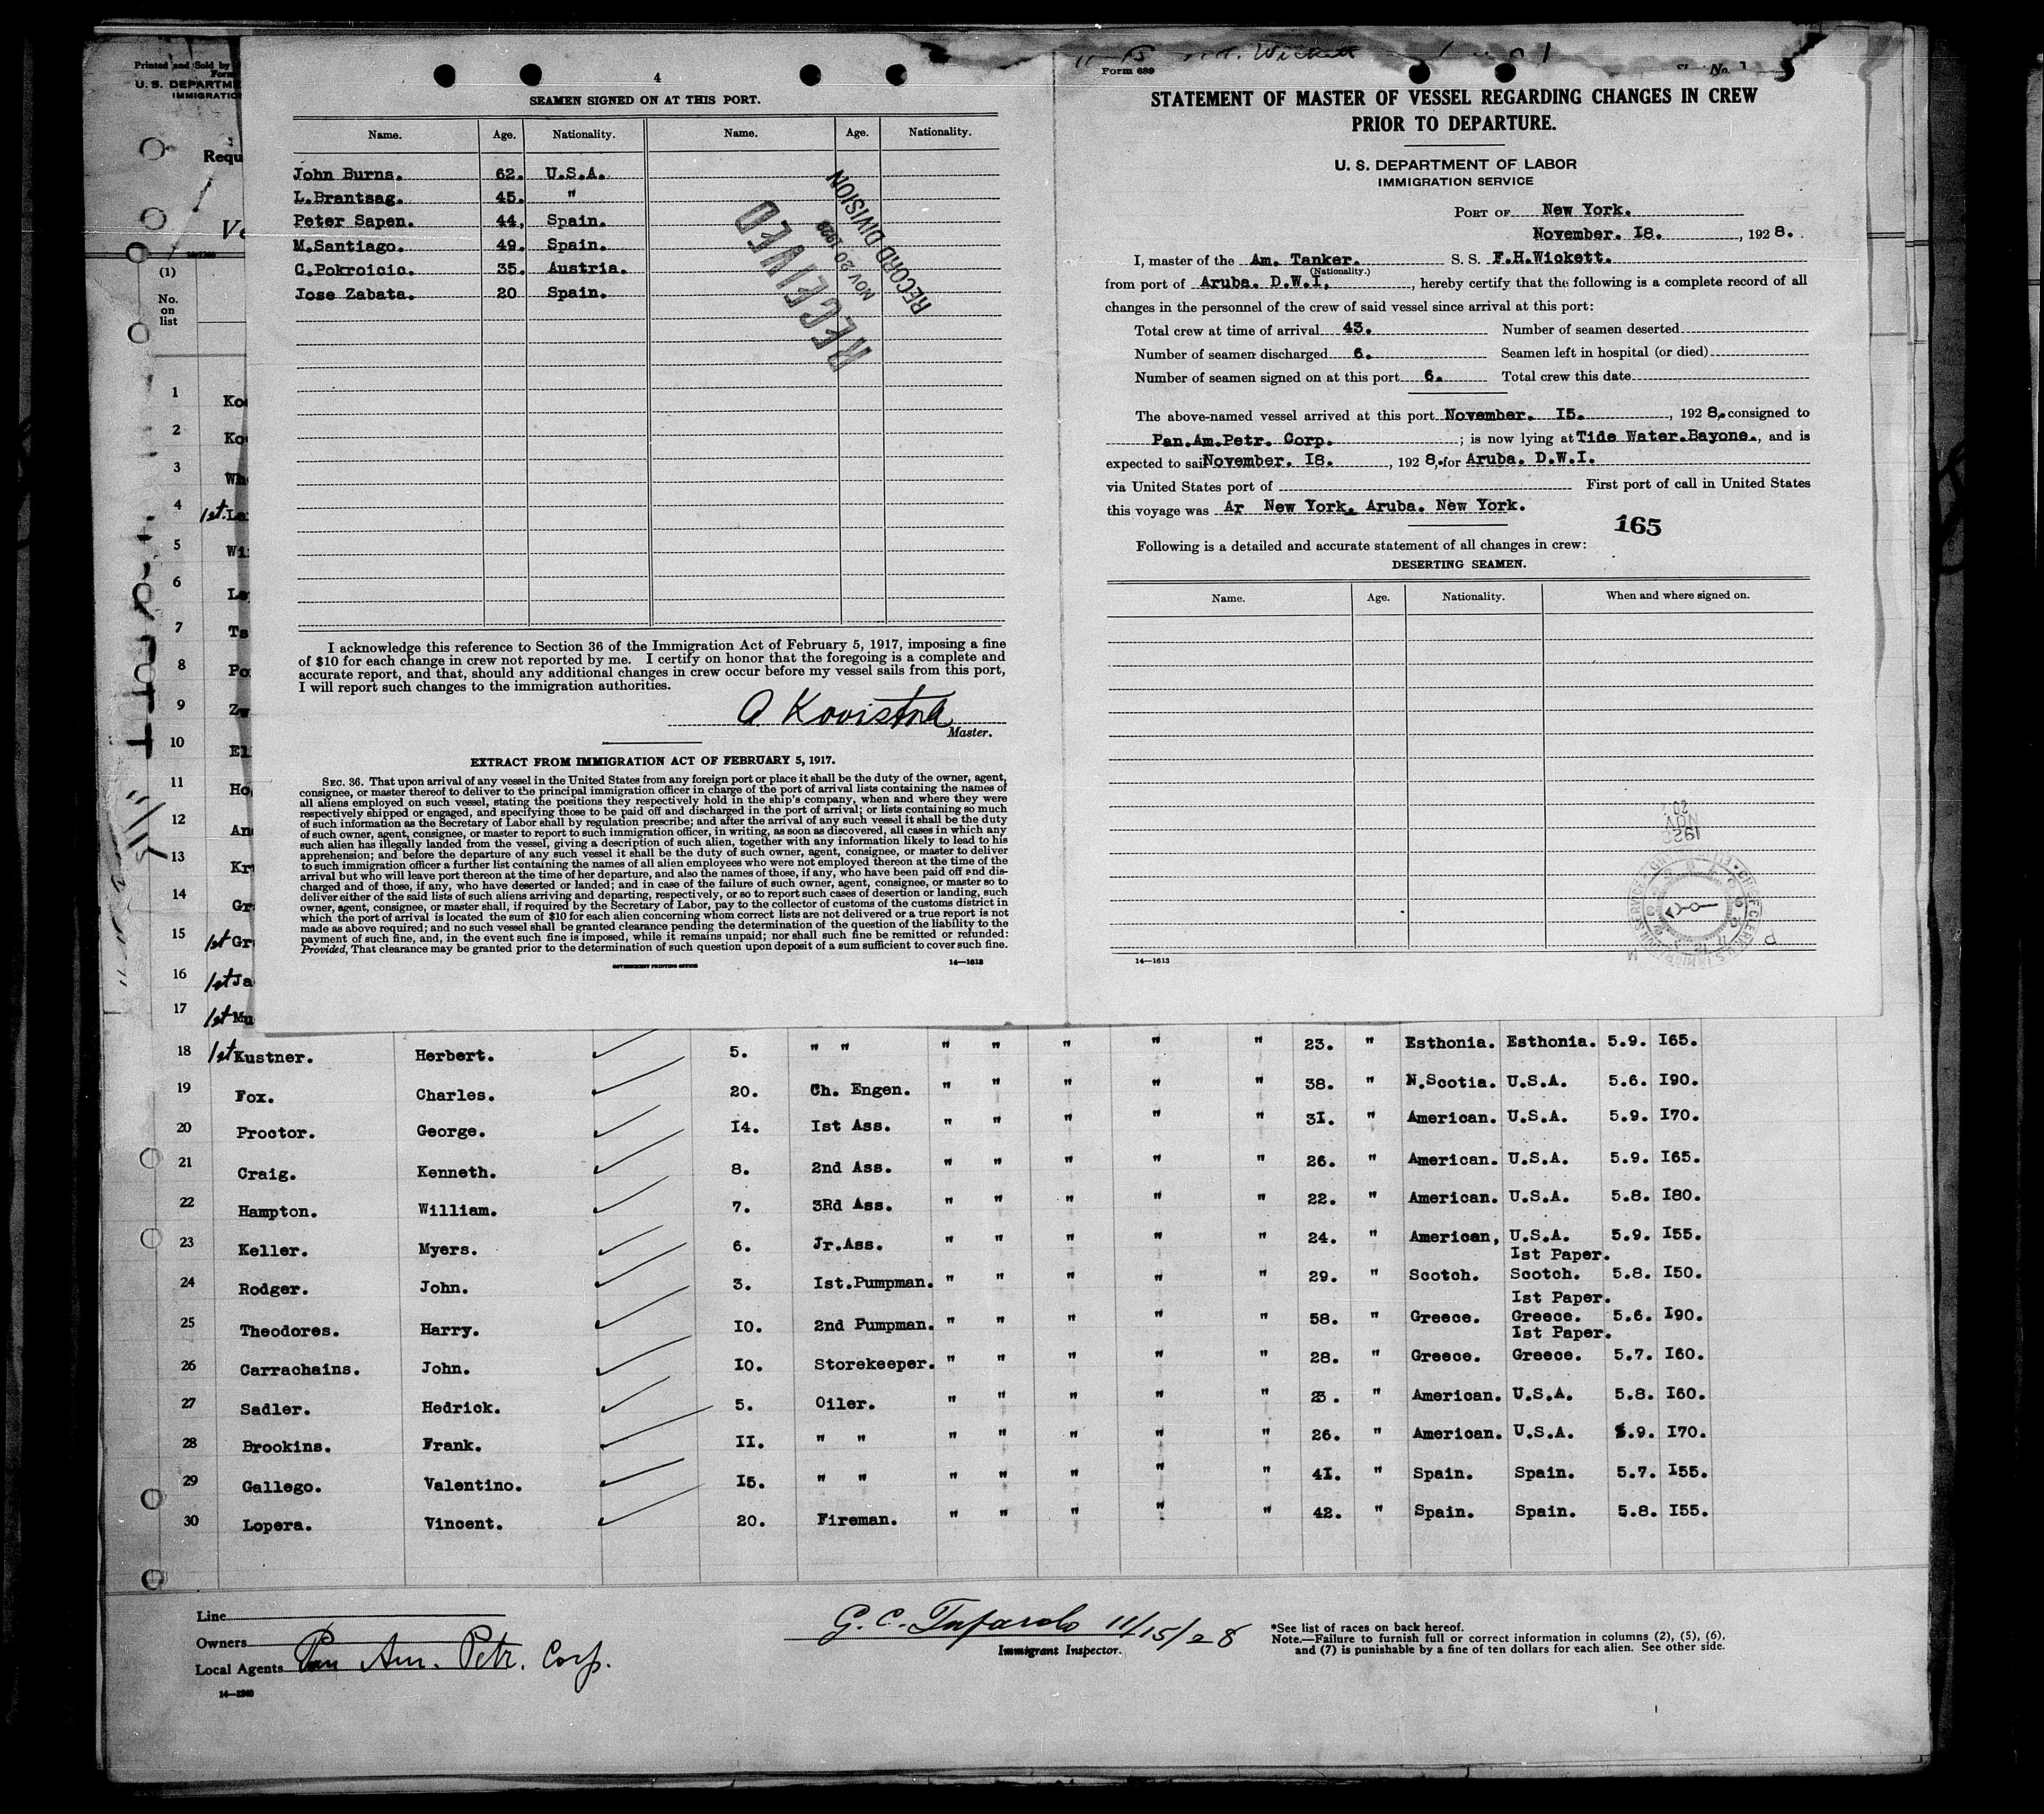 Printed and Sold by
Form
U. S. DEPARTME
IMMIGRATIO
Requ
(1)
No.
on
list
4
SEAMEN SIGNED ON AT THIS PORT.
Name. Age. Nationality. Name. Age. Nationality.
John Burns. 62. U.S.A.
L.Brantsag. 45. "
Peter Sapen. 44, Spain.
M.Santiago. 49. Spain.
C.Pokroicic. 35. Austria.
Jose Zabata. 20 Spain.
RECEIVED
NOV 20 1928
RECORD DIVISION
I acknowledge this reference to Section 36 of the Immigration Act of February 5, 1917, imposing a fine
of $10 for each change in crew not reported by me. I certify on honor that the foregoing is a complete and
accurate report, and that, should any additional changes in crew occur before my vessel sails from this port,
I will report such changes to the immigration authorities.
Master.
EXTRACT FROM IMMIGRATION ACT OF FEBRUARY 5, 1917.
SEC. 36. That upon arrival of any vessel in the United States from any foreign port or place it shall be the duty of the owner, agent,
consignee, or master thereof to deliver to the principal immigration officer in charge of the port of arrival lists containing the names of
all aliens employed on such vessel, stating the positions they respectively hold in the ship's company, when and where they were
respectively shipped or engaged, and specifying those to be paid off and discharged in the port of arrival; or lists containing so much
of such information as the Secretary of Labor shall by regulation prescribe; and after the arrival of any such vessel it shall be the duty
of such owner, agent, consignee, or master to report to such immigration officer, in writing, as soon as discovered, all cases in which any
such alien has illegally landed from the vessel, giving a description of such alien, together with any information likely to lead to his
apprehension; and before the departure of any such vessel it shall be the duty of such owner, agent, consignee, or master to deliver
to such immigration officer a further list containing the names of all alien employees who were not employed thereon at the time of the
arrival but who will leave port thereon at the time of her departure, and also the names of those, if any, who have been paid off and dis-
charged and of those, if any, who have deserted or landed; and in case of the failure of such owner, agent, consignee, or master so to
deliver either of the said lists of such aliens arriving and departing, respectively, or so to report such cases of desertion or landing, such
owner, agent, consignee, or master shall, if required by the Secretary of Labor, pay to the collector of customs of the customs district in
which the port of arrival is located the sum of $10 for each alien concerning whom correct lists are not delivered or a true report is not
made as above required; and no such vessel shall be granted clearance pending the determination of the question of the liability to the
payment of such fine, and, in the event such fine is imposed, while it remains unpaid; nor shall such fine be remitted or refunded:
Provided, That clearance may be granted prior to the determination of such question upon deposit of a sum sufficient to cover such fine.
GOVERNMENT PRINTING OFFICE 14—1613
Wickett
Form 689
STATEMENT OF MASTER OF VESSEL REGARDING CHANGES IN CREW
PRIOR TO DEPARTURE.
U. S. DEPARTMENT OF LABOR
IMMIGRATION SERVICE
PORT OF New York.
November. I8. , 1928.
I, master of the Am. Tanker. S. S. F.H.Wickett.
(Nationality.)
from port of Aruba. D.W.I. , hereby certify that the following is a complete record of all
changes in the personnel of the crew of said vessel since arrival at this port:
Total crew at time of arrival 43. Number of seamen deserted
Number of seamen discharged 6. Seamen left in hospital (or died)
Number of seamen signed on at this port 6. Total crew this date
The above-named vessel arrived at this port November. I5. , 1928. consigned to
Pan.Am.Petr. Corp. ; is now lying at Tide Water.Bayone., and is
expected to sail November. I8. , 1928, for Aruba. D.W.I.
via United States port of First port of call in United States
this voyage was Ar New York. Aruba. New York.
165
Following is a detailed and accurate statement of all changes in crew:
DESERTING SEAMEN.
Name. Age. Nationality. When and where signed on.
20
NOV
1928
14—1613
1 Ko
2 Ko
3 Wh
4 1st. La
5 Wi
6 Le
7 Ts
8 Po
9 Zw
10 El
11 Ho
12 An
13 Kr
14 Gr
15 1st Gr
16 1st Ja
17 1st Mu
18 1st Kustner. Herbert. 5. " " " " " " " 23. " Esthonia. Esthonia. 5.9. I65.
19 Fox. Charles. 20. Ch. Engen. " " " " " 38. " N.Scotia. U.S.A. 5.6. I90.
20 Proctor. George. I4. Ist Ass. " " " " " 3I. " American. U.S.A. 5.9. I70.
21 Craig. Kenneth. 8. 2nd Ass. " " " " " 26. " American. U.S.A. 5.9. I65.
22 Hampton. William. 7. 3Rd Ass. " " " " " 22. " American. U.S.A. 5.8. I80.
23 Keller. Myers. 6. Jr.Ass. " " " " " 24. " American, U.S.A. 5.9. I55.
Ist Paper.
24 Rodger. John. 3. Ist.Pumpman. " " " " " 29. " Scotch. Scotch. 5.8. I50.
Ist Paper.
25 Theodores. Harry. IO. 2nd Pumpman. " " " " " 58. " Greece. Greece. 5.6. I90.
Ist Paper.
26 Carrachains. John. IO. Storekeeper. " " " " " 28. " Greece. Greece. 5.7. I60.
27 Sadler. Hedrick. 5. Oiler. " " " " " 23. " American. U.S.A. 5.8. I60.
28 Brookins. Frank. II. " " " " " " " 26. " American. U.S.A. 5.9. I70.
29 Gallego. Valentino. I5. " " " " " " " 4I. " Spain. Spain. 5.7. I55.
30 Lopera. Vincent. 20. Fireman. " " " " " 42. " Spain. Spain. 5.8. I55.
Line
Owners
Local Agents Pan Am. Petr. Corp.
14—1240
11/15/28
Immigrant Inspector.
*See list of races on back hereof.
Note.—Failure to furnish full or correct information in columns (2), (5), (6),
and (7) is punishable by a fine of ten dollars for each alien. See other side.